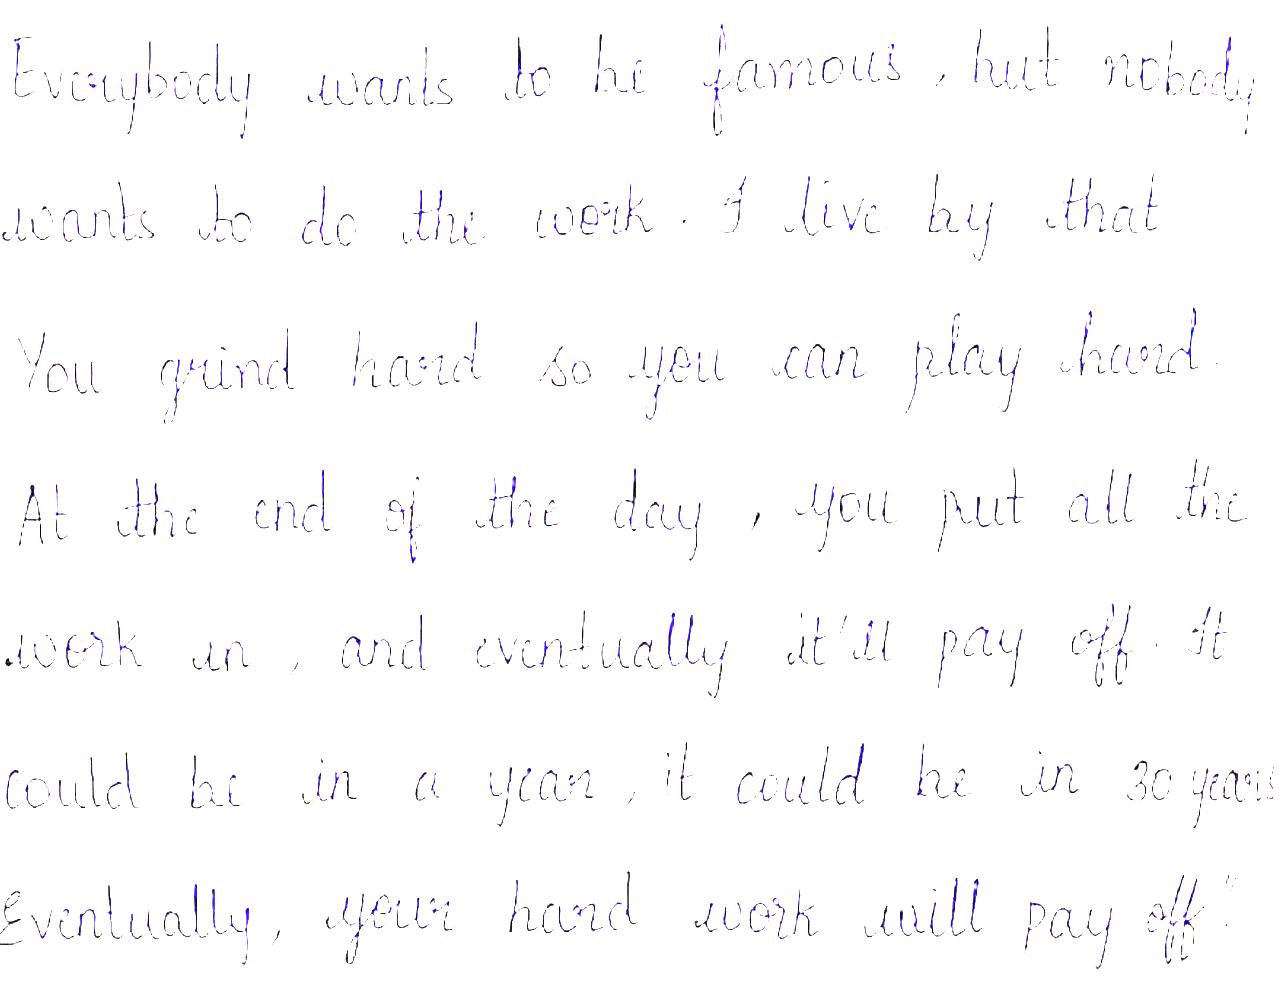 Everybody wants to be famous, but nobody
wants to do the work. I live by that
You grind hard so you can play hard.
At the end of the day, you put all the
work in, and eventually it'll pay off. It
could be in a year, it could be in 30 years
Eventually, your hard work will pay off."